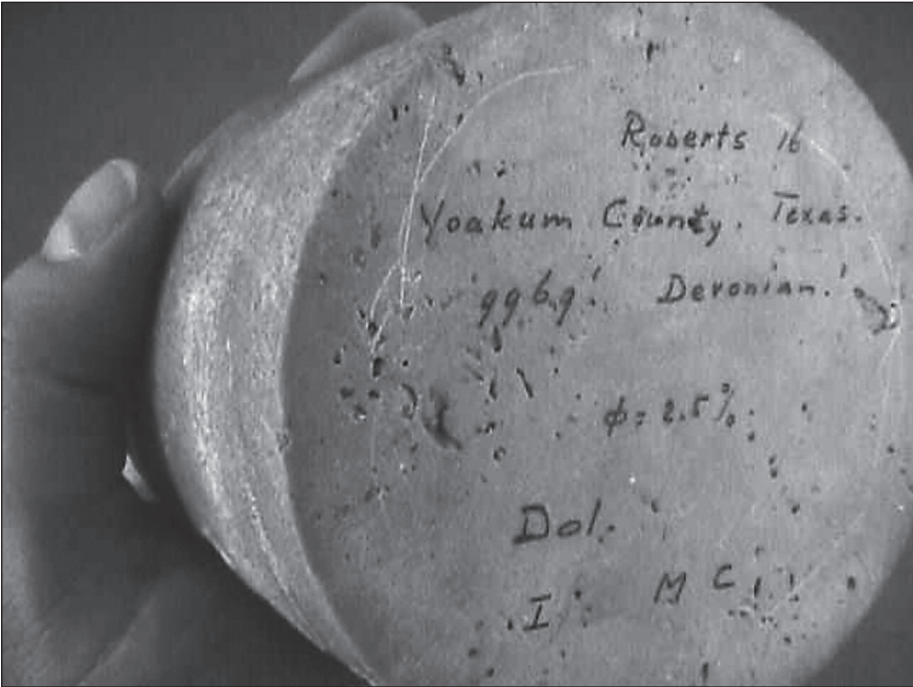 Roberts 16
Yoakum County, Texas.
9969' Devonian.
φ = 2.5%
Dol.
I M C